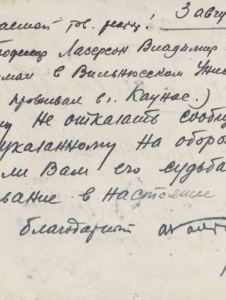 3 авг
тов. ректор!
Лазерсон Владимир
в Вильнюсском Уни
проживал в г. Каунас.)
Не отказать сообщ
указанному на оборо
ли Вам его судьба
вание в настояще
благодарный